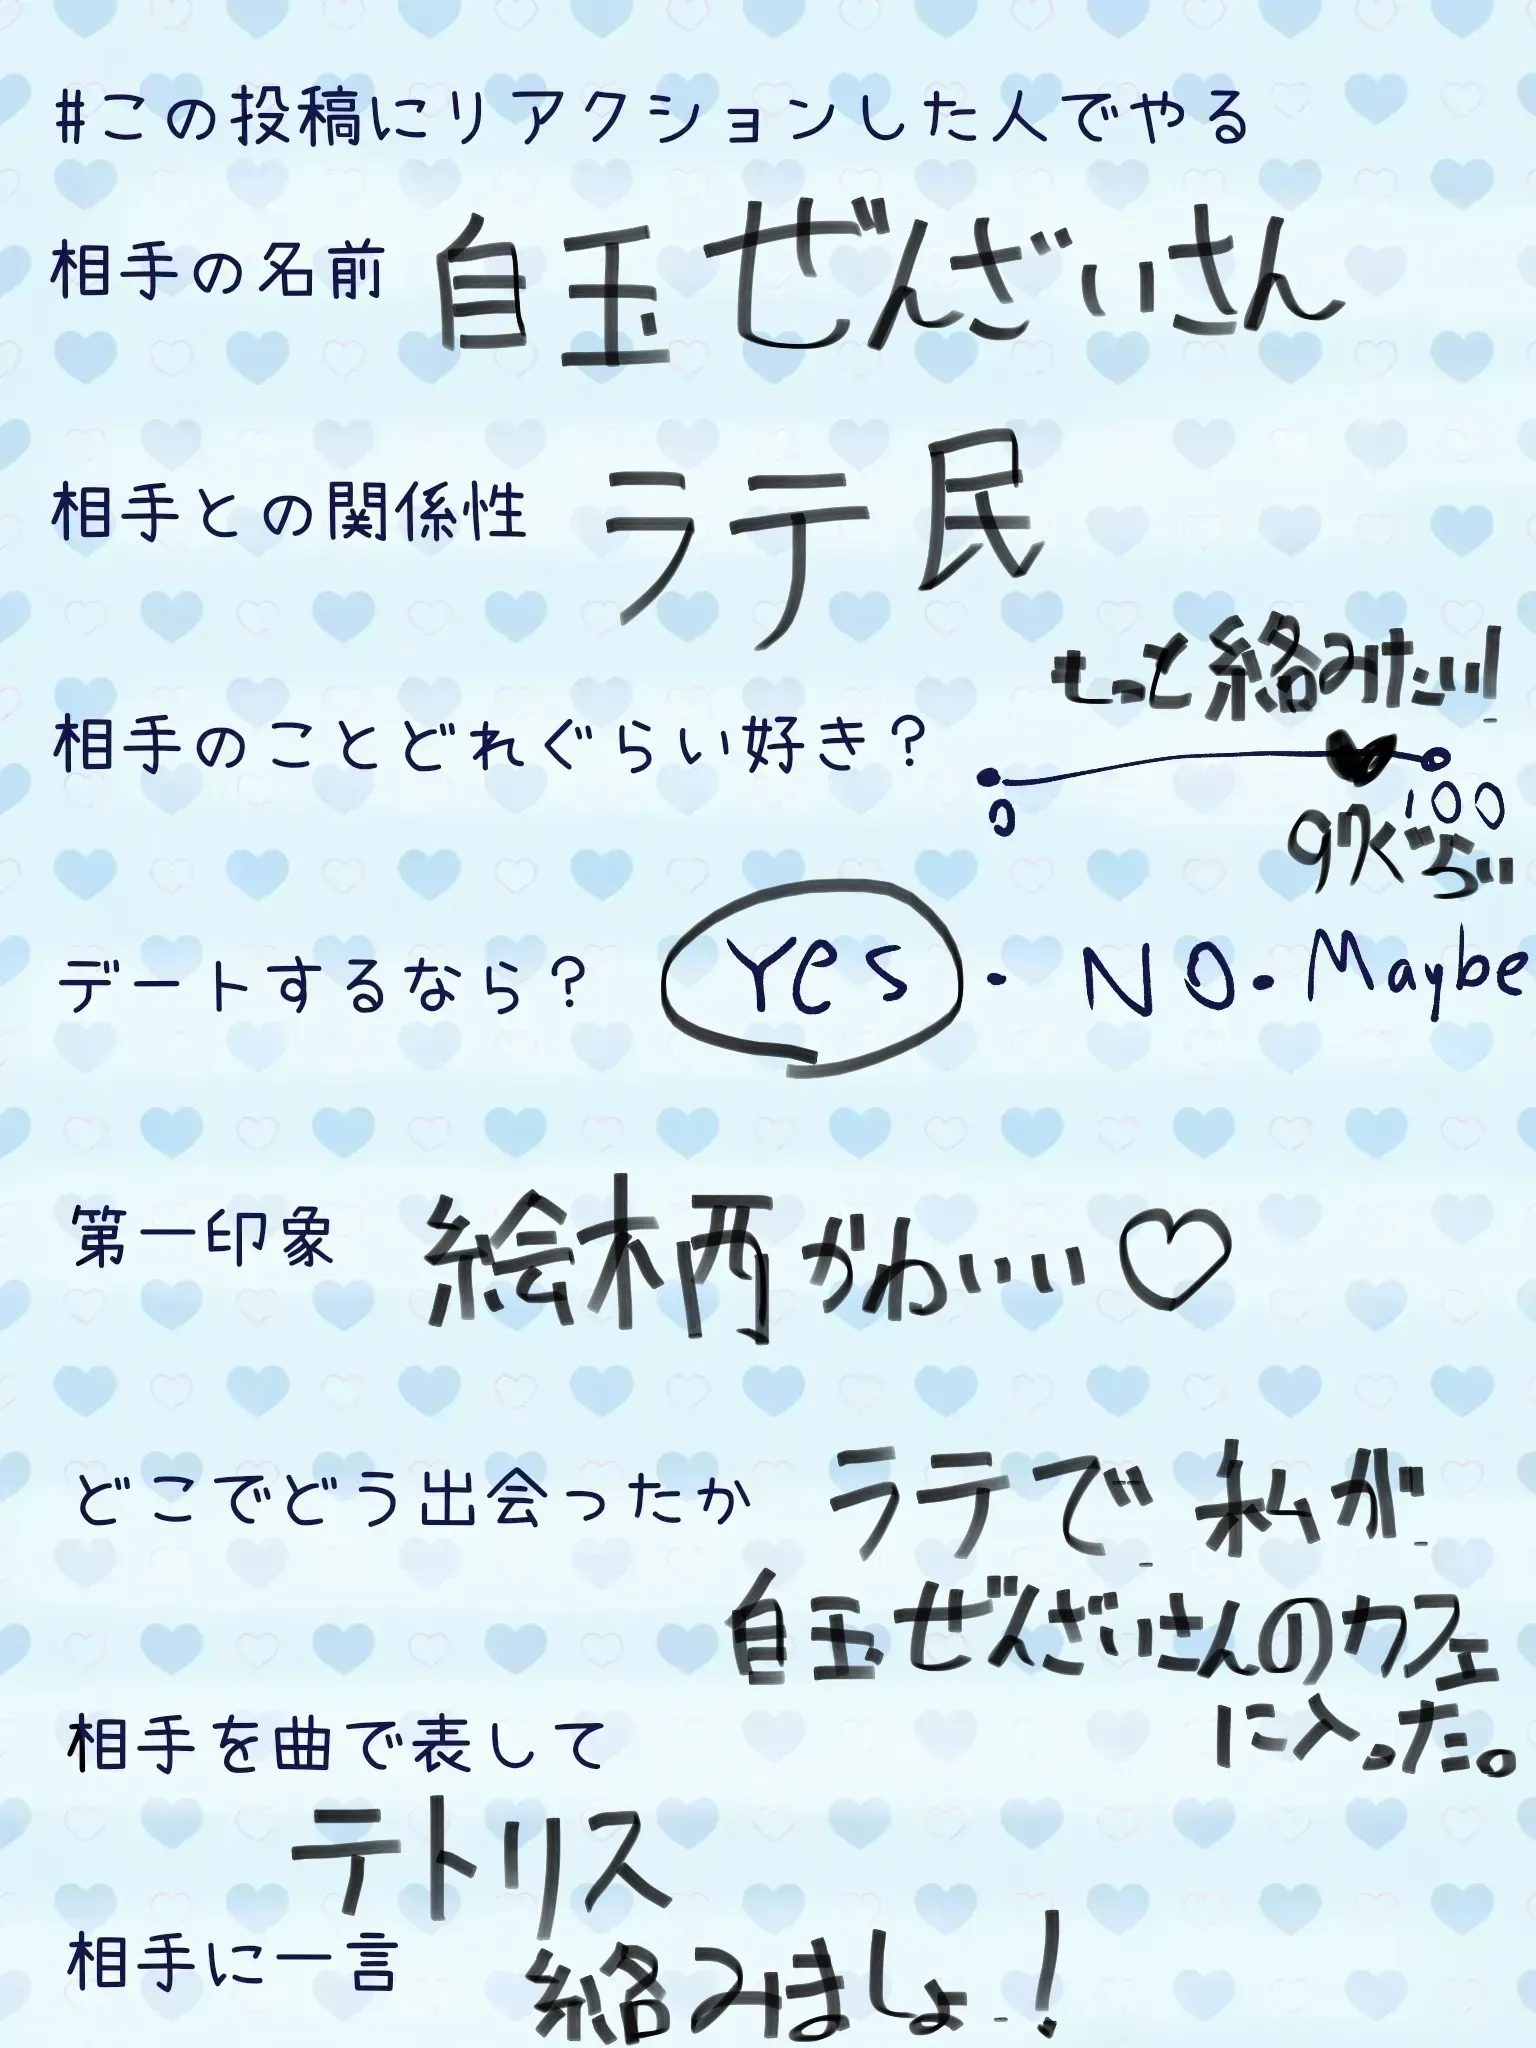 #この投稿にリアクションした人でやる
相手の名前 白玉ぜんざいさん
相手との関係性 ラテ民
もっと絡みたい!
相手のことどれぐらい好き?
0 100
97ぐらい
デートするなら? Yes・NO・Maybe
第一印象 絵柄かわいい♡
どこでどう出会ったか ラテで私が
白玉ぜんざいさんのカフェ
に入った。
相手を曲で表して
テトリス
相手に一言 絡みましょ!